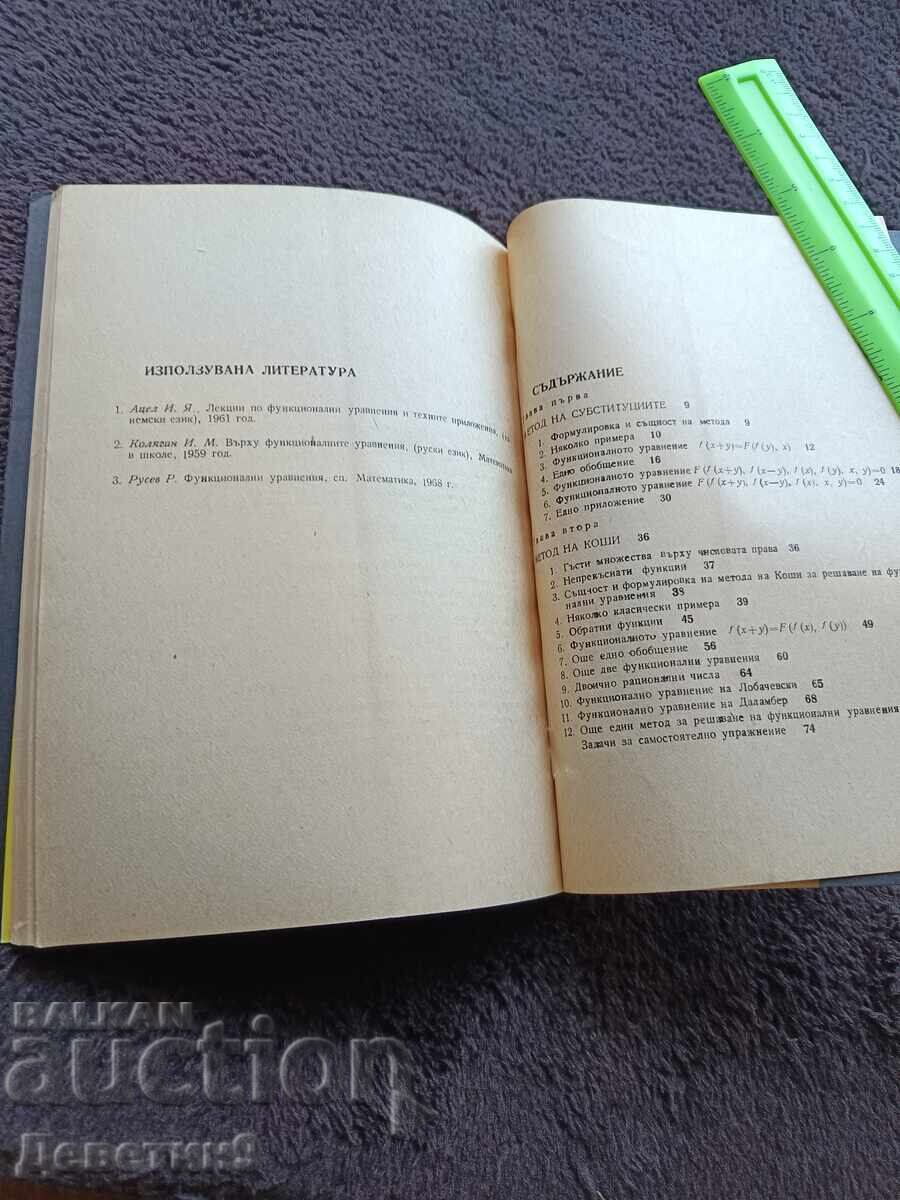 ИЗПОЛЗУВАНА ЛИТЕРАТУРА
1. Ацел И. Я., Лекции по функционални уравнения и техните приложения, (на
немски език), 1961 год.
2. Колягин И. М. Върху функционалните уравнения, (руски език), Математика
в школе, 1959 год.
3. Русев Р. Функционални уравнения, сп. Математика, 1968 г.
СЪДЪРЖАНИЕ
лава първа
МЕТОД НА СУБСТИТУЦИИТЕ 9
1. Формулировка и същност на метода 9
2. Няколко примера 10
3. Функционалното уравнение f(x+y)=F(f(y), x) 12
4. Едно обобщение 16
5. Функционалното уравнение F(f(x+y), f(x—y), f(x), f(y), x, y)=0 18
6. Функционалното уравнение F(f(x+y), f(x—y), f(x), x, y)=0 24
7. Едно приложение 30
лава втора
МЕТОД НА КОШИ 36
1. Гъсти множества върху числовата права 36
2. Непрекъснати функции 37
3. Същност и формулировка на метода на Коши за решаване на фун
нални уравнения 38
4. Няколко класически примера 39
5. Обратни функции 45
6. Функционалното уравнение f(x+y)=F(f(x), f(y)) 49
7. Още едно обобщение 56
8. Още две функционални уравнения 60
9. Двоично рационални числа 64
10. Функционално уравнение на Лобачевски 65
11. Функционално уравнение на Даламбер 68
12. Още един метод за решаване на функционални уравнения
Задачи за самостоятелно упражнение 74
BALKAN
auction
Деветкин9